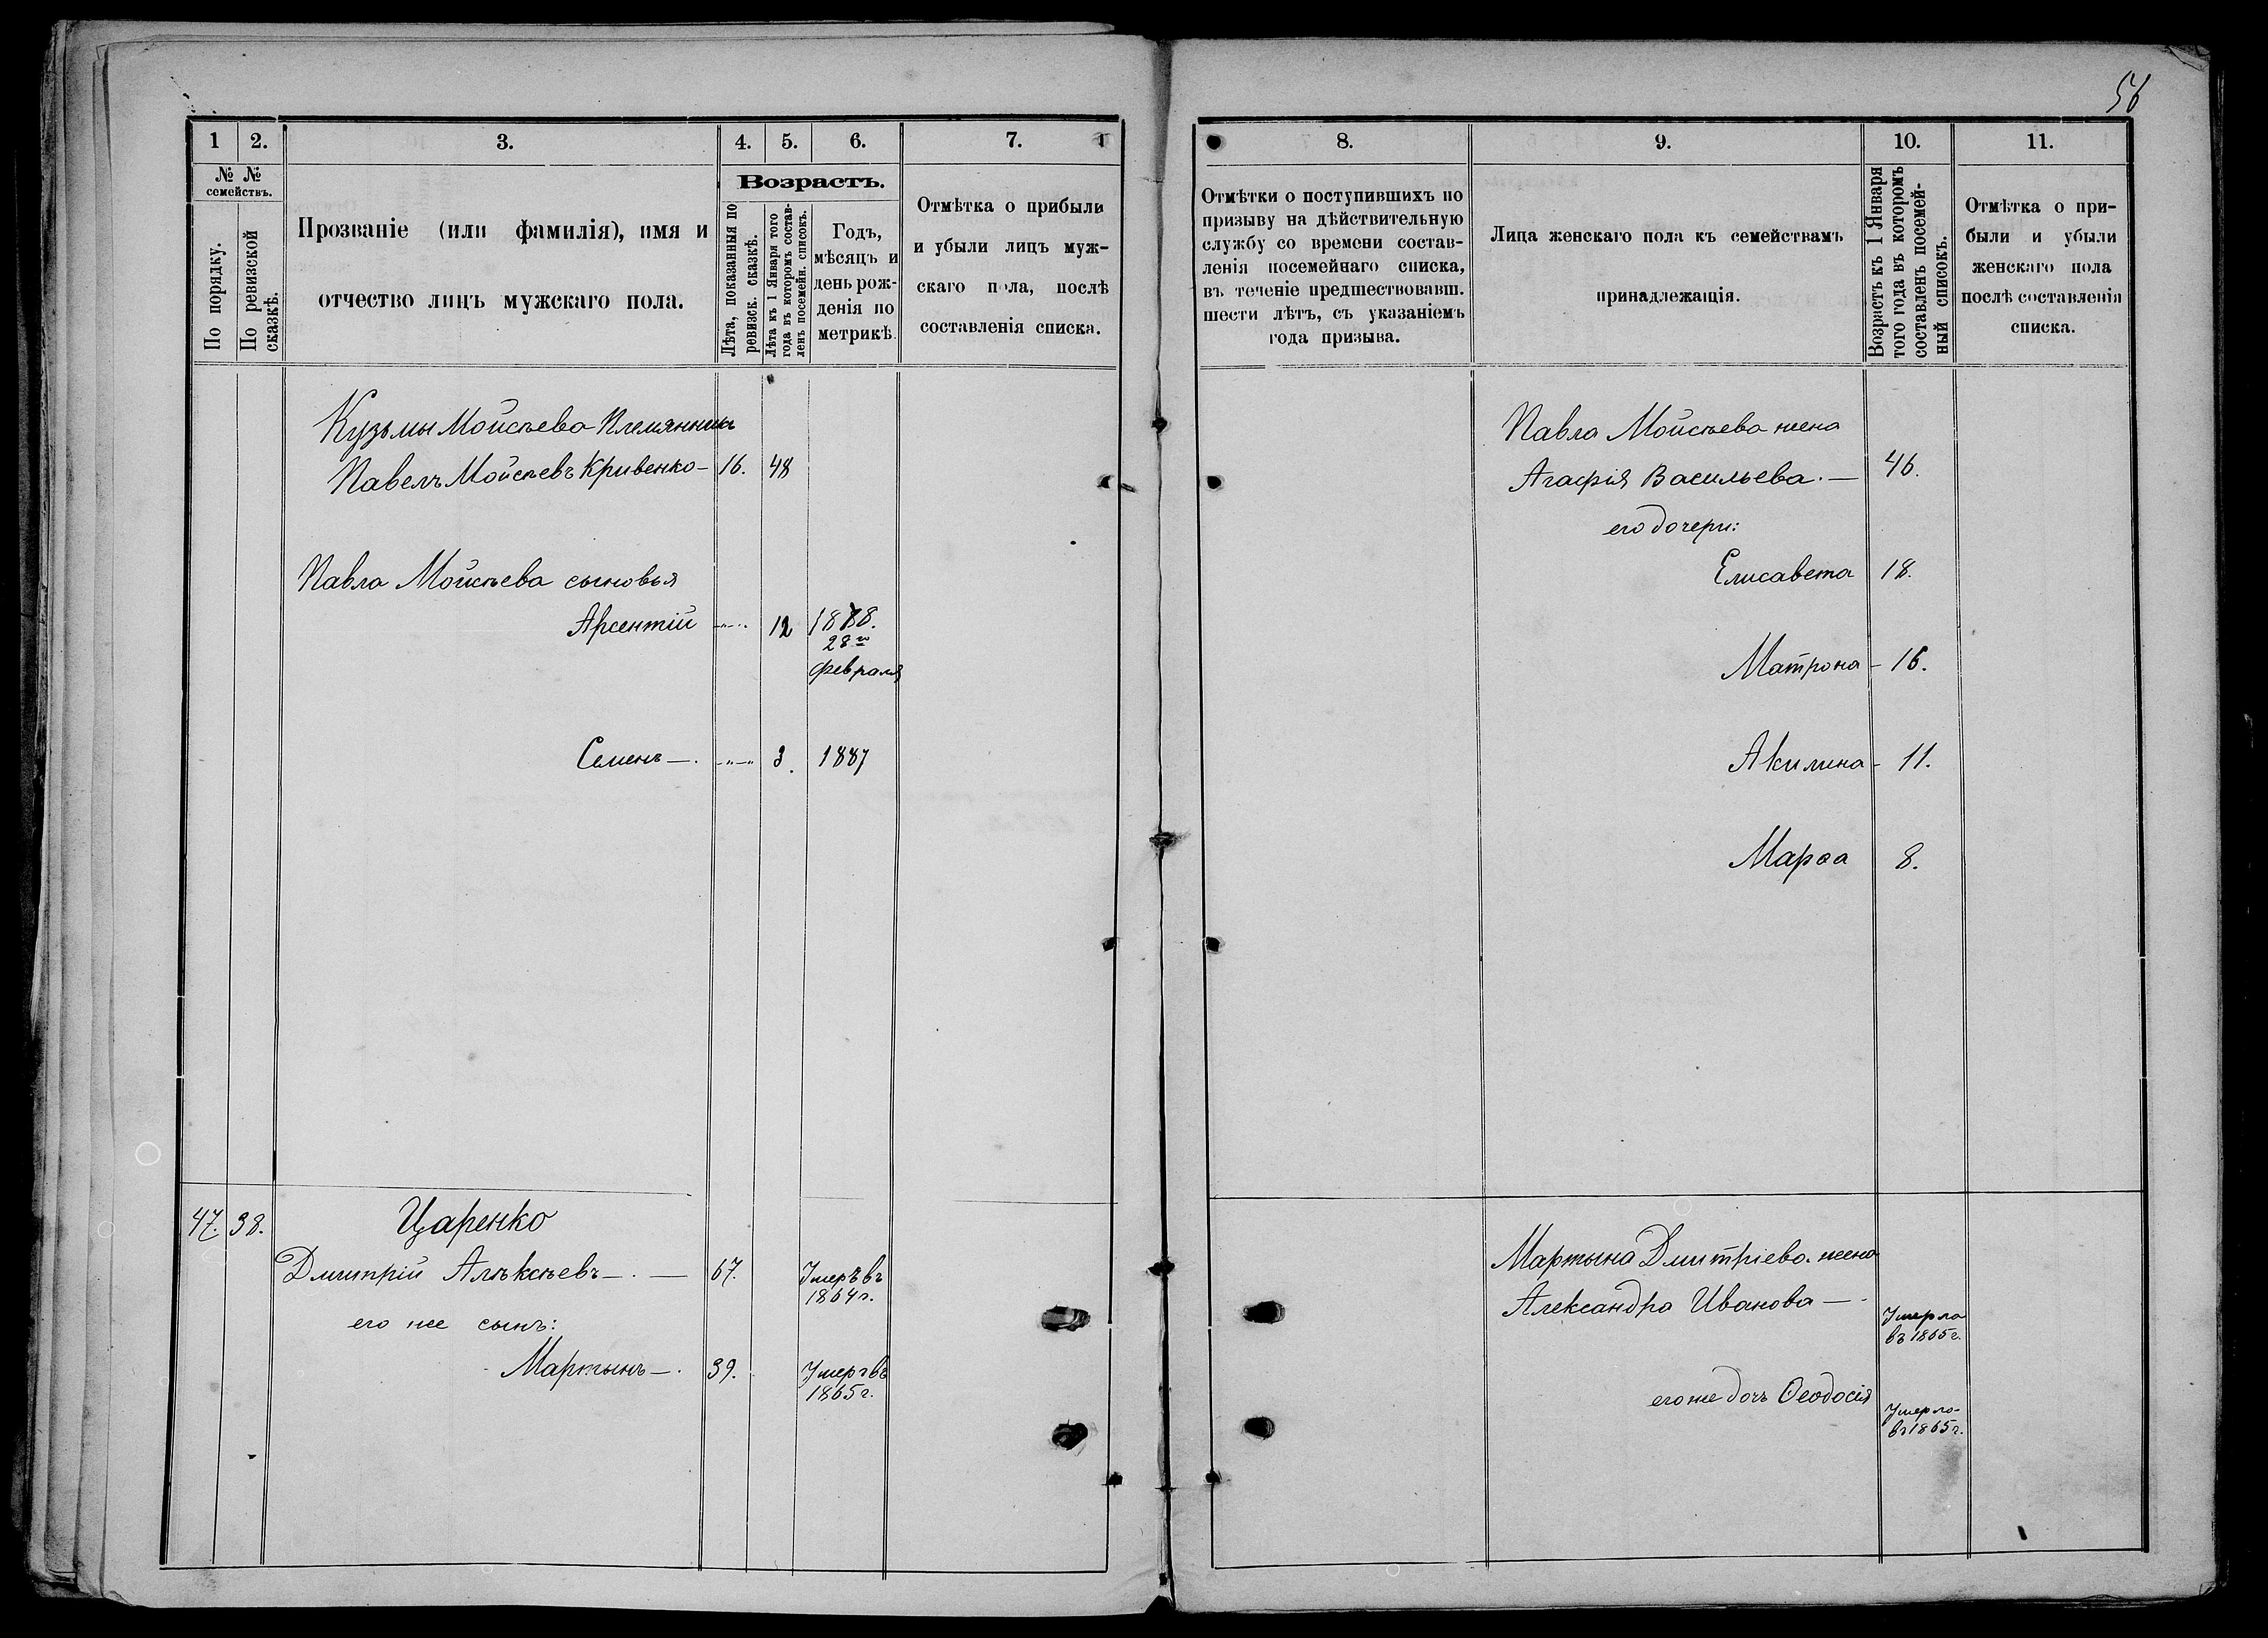 56
1
2.
3.
4.
5.
6.
7.
№ №
семействъ.
По порядку.
По ревизской
сказкѣ.
Прозваніе (или фамилія), имя и
отчество лицъ мужскаго пола.
Возрастъ.
Лѣта, показанныя по
ревизск. сказкѣ.
Лѣта къ 1 Января того
года въ которомъ состав-
ленъ посемейн. списокъ.
Годъ,
мѣсяцъ и
день рож-
денія по
метрикѣ.
Отмѣтка о прибыли
и убыли лицъ муж-
скаго пола, послѣ
составленія списка.
Кузьмы Мойсѣева Племянникъ
Павелъ Мойсѣевъ Кривенко — 16. 48
Павла Мойсѣева сыновья
Арсентій — " — 12 1878.
28го
февраля
Семенъ — . — " — " 3. 1887
47. 38. Царенко
Дмитрій Алѣксѣевъ — . — 67. Умеръ въ
1864 г.
его же сынъ:
Мартынъ — . 39. Умеръ въ
1865 г.
8.
9.
10.
11.
Отмѣтки о поступившихъ по
призыву на дѣйствительную
службу со времени состав-
ленія посемейнаго списка,
въ теченіе предшествовавш.
шести лѣтъ, съ указаніемъ
года призыва.
Лица женскаго пола къ семействамъ
принадлежащія.
Возрастъ къ 1 Января
того года въ которомъ
составленъ посемей-
ный списокъ.
Отмѣтка о при-
были и убыли
женскаго пола
послѣ составленія
списка.
Павла Мойсѣева жена
Агафія Васильева. — 46.
его дочери:
Елисавета 18.
Матрона — 16.
Акилина — 11.
Марѳа 8.
Мартына Дмитріева. жена
Александра Иванова — - Умерла
въ 1865 г.
его же дочь Ѳеодосія Умерла-
въ 1865 г.